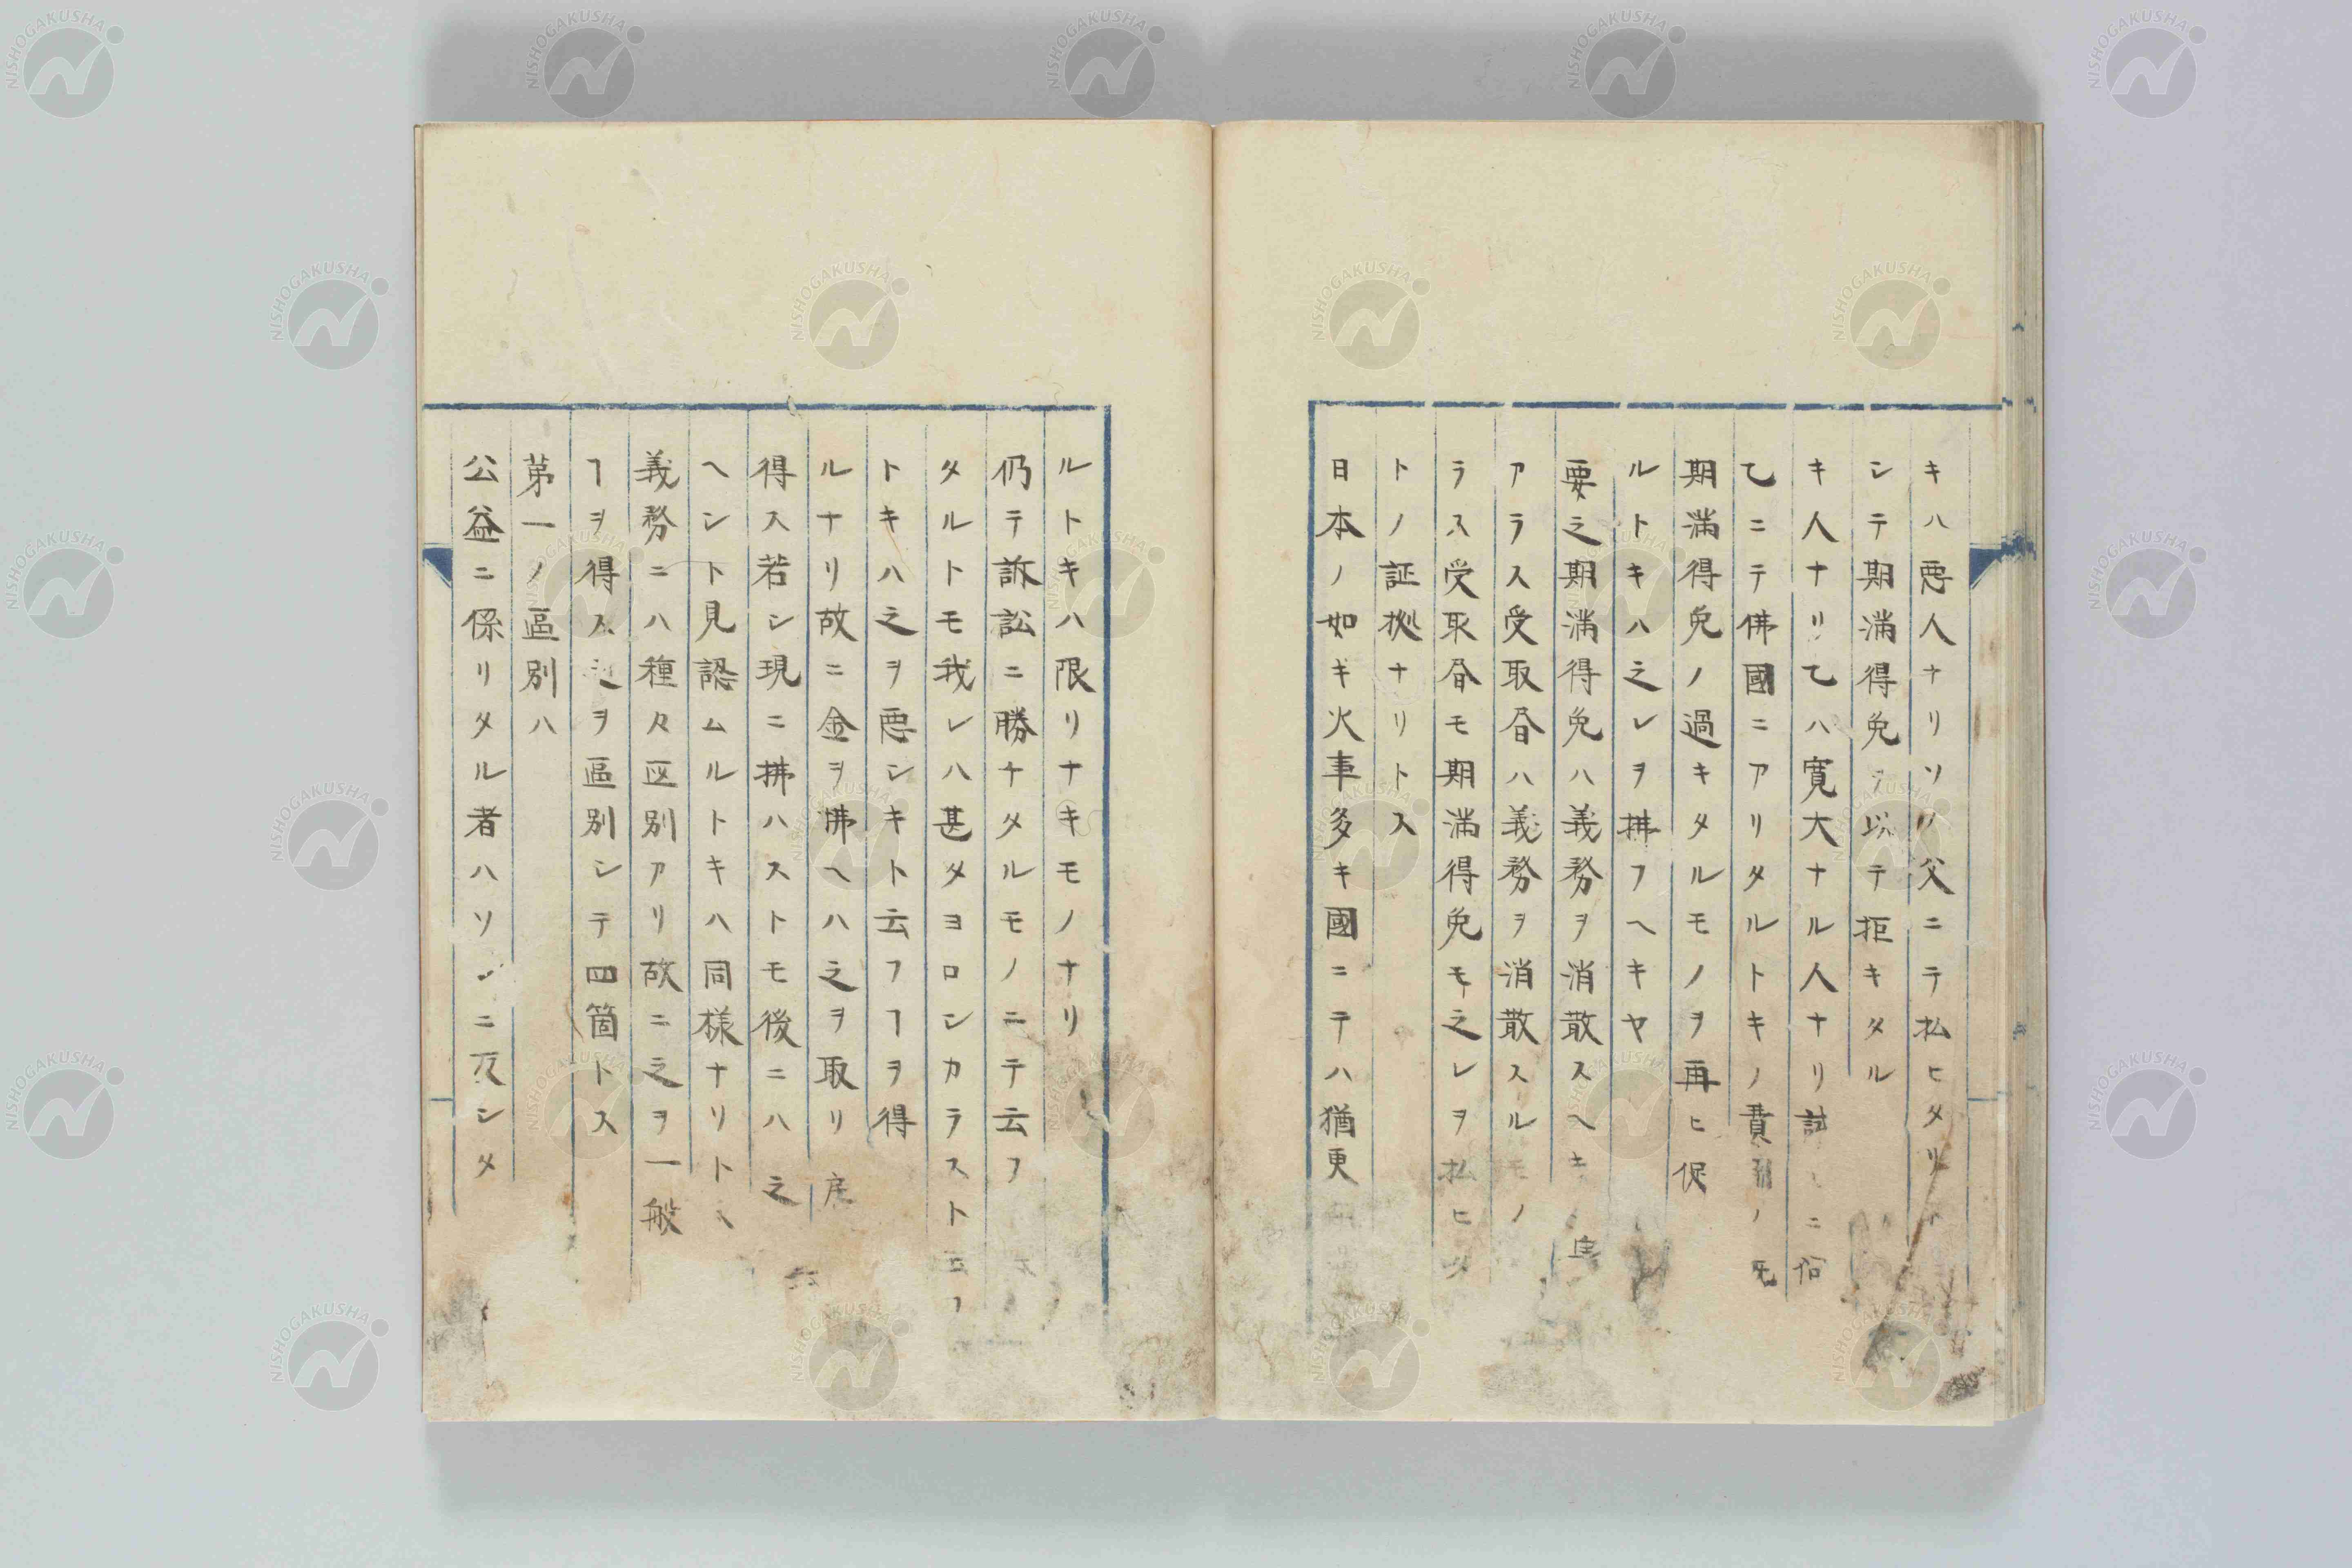 キハ悪人ナリソノ父ニテ払ヒタリ
シテ期満得免ヲ以テ拒キタル
キ人ナリ乙ハ寛大ナル人ナリ試ニ何
乙ニテ佛國ニアリタルトキノ責ノ死
期満得免ノ過キタルモノヲ再ヒ促
ルトキハ之レヲ拂フヘキヤ
要之期満得免ハ義務ヲ消散スヘキ
アラス受取昏ハ義務ヲ消散スルモノ
ラス受取昏モ期満得免モ之レヲ払ヒタ
トノ証拠ナリトス
日本ノ如キ火事多キ國ニテハ猶更
ルトキハ限リナキモノナリ
仍テ訴訟ニ勝ナタルモノニテ云フ
タルトモ我レハ甚タヨロシカラスト云フ
トキハ之ヲ悪シキト云フヿヲ得
ルナリ故ニ金ヲ拂ヘハ之ヲ取リ戻
得ス若シ現ニ拂ハストモ後ニハ之
ヘント見認ムルトキハ同様ナリト
義務ニハ種々区別アリ故ニ之ヲ一般
ヿヲ得ス之ヲ區別シテ四箇トス
第一ノ區別ハ
公益ニ係リタル者ハソレニ反シタ
NISHOGAKUSHA